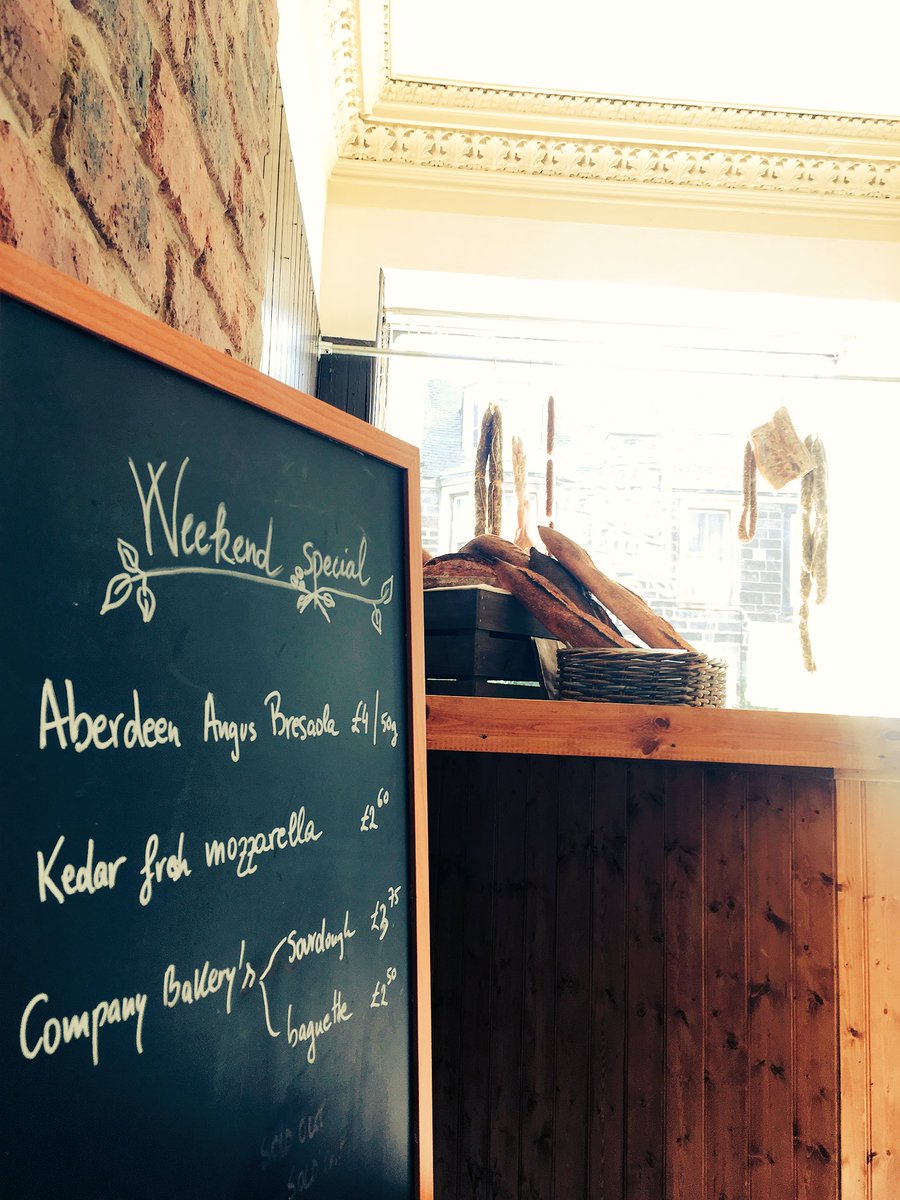 Weekend special
Aberdeen Angus Bresaola £4/50g
Kedar fresh mozzarella £2.60
Company Bakery's
Sourdough £3.75
baguette £2.50
SOLD OUT
SOLD OUT